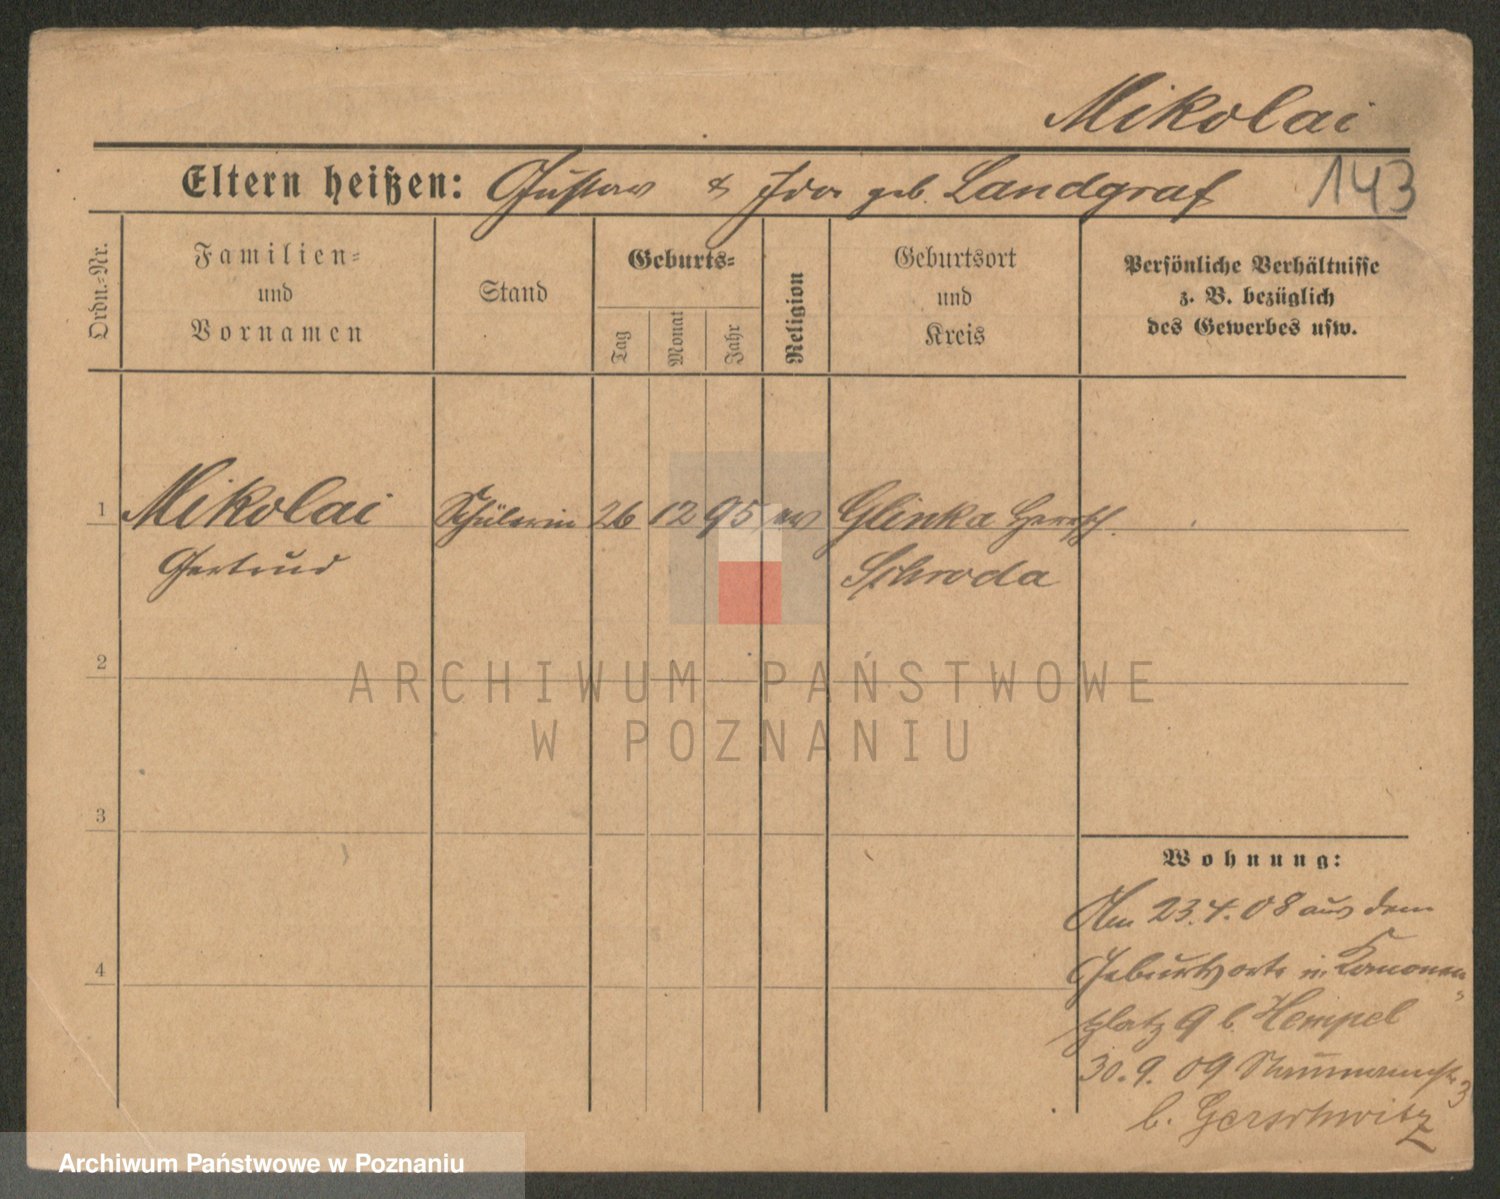 Mikolai
Eltern heißen: Gustav & Ida geb. Landgraf 143
Ordn.-Nr.
Familien- und Vornamen
Stand
Geburts-
Tag
Monat
Jahr
Religion
Geburtsort und Kreis
Persönliche Verhältnisse
z. B. bezüglich
des Gewerbes usw.
1 Mikolai Schülerin 26 12 95 ev Glinka Herrsch.
Gertrud Schroda
2
3
4
Wohnung:
Am 23.4.08 aus dem
Geburtsorte n. Kanonen-
platz 9 b. Hempel
30.9.09 3
b. Gerschwitz
ARCHIWUM PAŃSTWOWE
W POZNANIU
Archiwum Państwowe w Poznaniu